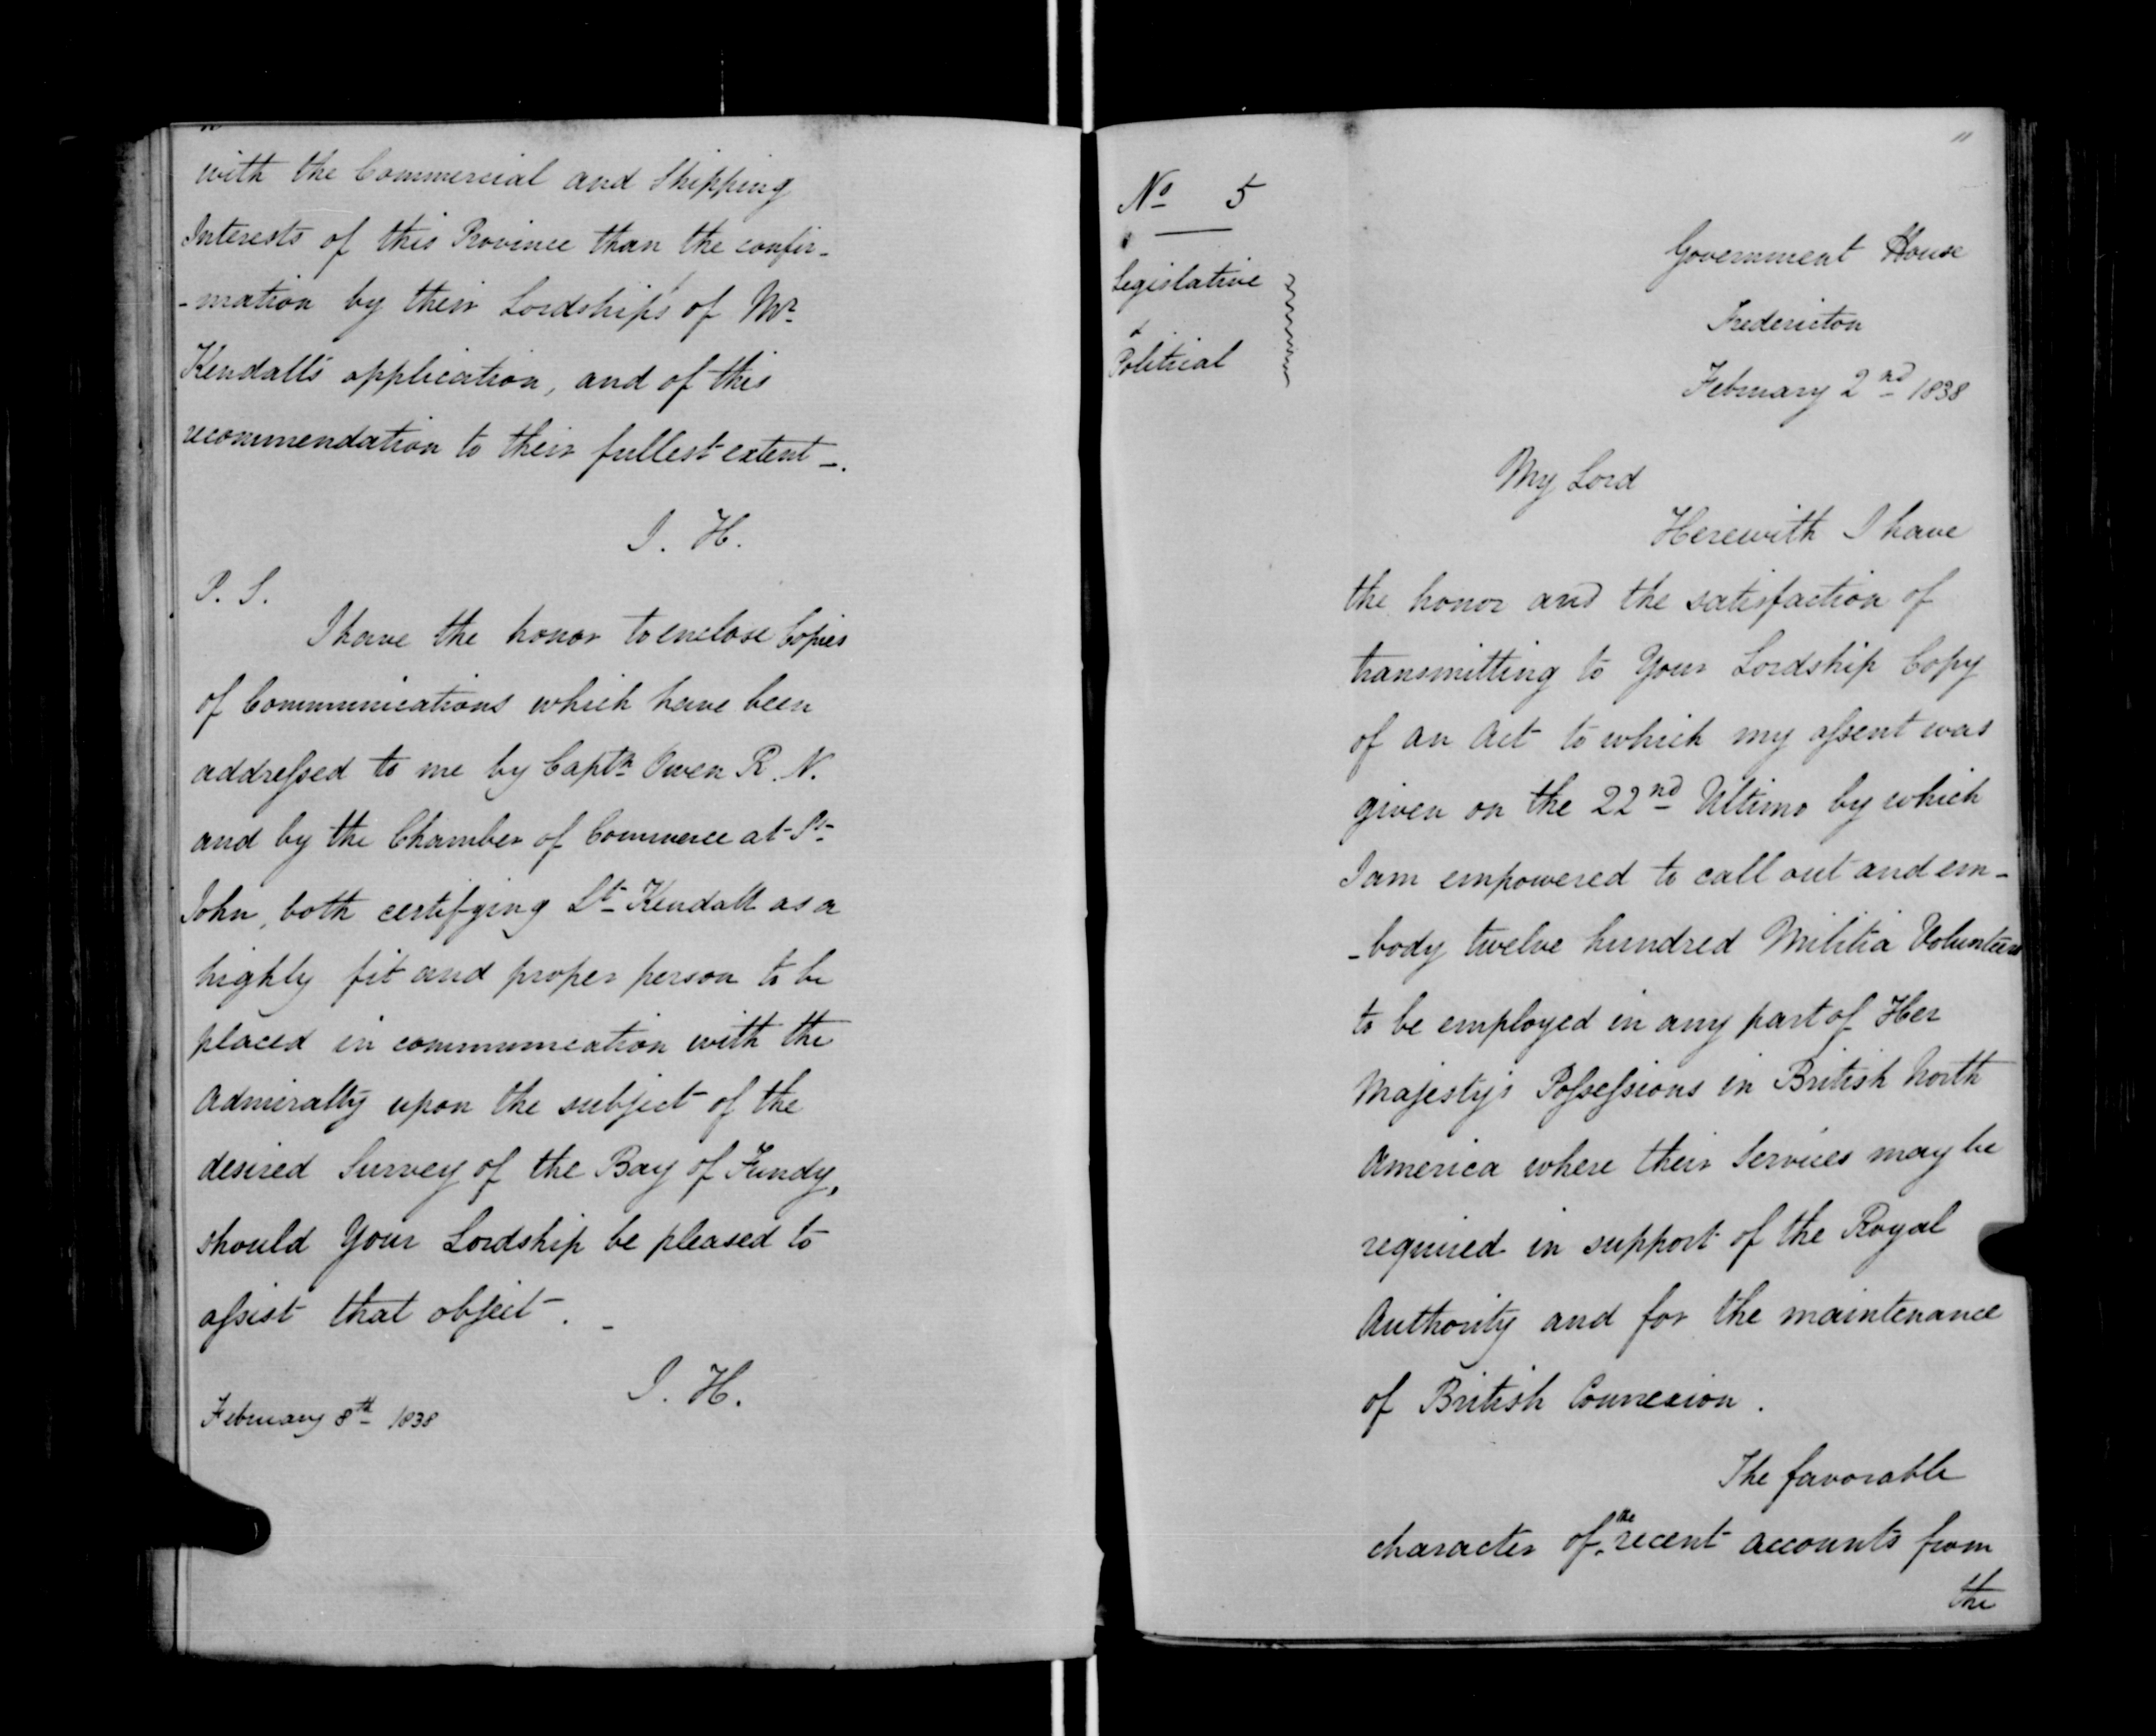 with the Commercial and Shipping
Interests of this Province than the confir-
-mation by their Lordships of Mr.
Kendall's application, and of this
recommendation to their fullest extent -.
J. H.
P. S.
I have the honor to enclose Copies
of Communications which have been
addressed to me by Captn Owen R. N.
and by the Chamber of Commerce at St.
John, both certifying Lt. Kendall as a
highly fit and proper person to be
placed in communication with the
Admiralty upon the subject of the
desired Survey of the Bay of Fundy,
should Your Lordship be pleased to
assist that object. -
J. H.
February 8th 1838
11
No 5
Legislative
&
Political
Government House
Fredericton
February 2nd 1838
My Lord
Herewith I have
the honor and the satisfaction of
transmitting to Your Lordship Copy
of an Act to which my assent was
given on the 22nd Ultimo by which
I am empowered to call out and em-
-body twelve hundred Militia Volunteers
to be employed in any part of Her
Majesty's Possessions in British North
America where their Services may be
required in support of the Royal
Authority and for the maintenance
of British Connexion.
The favorable
character of the recent accounts from
the